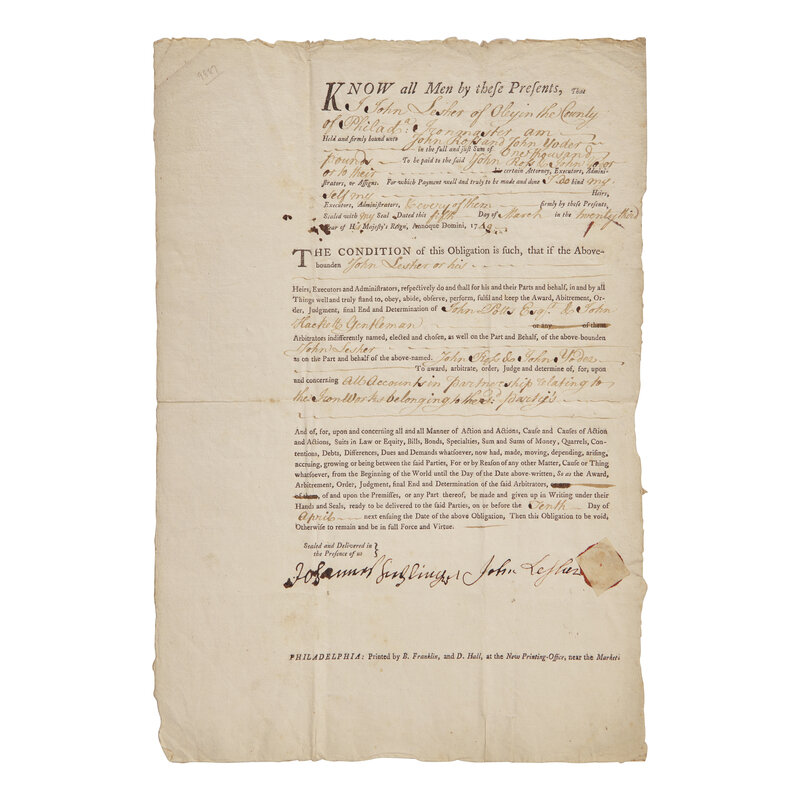 KNOW all Men by these Presents, That
I John Lesher of Oley in the County
of Philada. Ironmaster am
Held and firmly bound unto John Ross and John Yoder
in the full and just Sum of One thousand
pounds To be paid to the said John Ross & John Yoder
or to their certain Attorney, Executors, Admini-
strators, or Assigns. For which Payment well and truly to be made and done I do bind my
self my Heirs,
Executors, Administrators, & every of them firmly by these Presents,
Sealed with my Seal Dated this fifth Day of March in the twenty third
Year of His Majesty's Reign, Annoque Domini, 174
THE CONDITION of this Obligation is such, that if the Above-
bounden John Lesher or his
Heirs, Executors and Administrators, respectively do and shall for his and their Parts and behalf, in and by all
Things well and truly stand to, obey, abide, observe, perform, fulfil and keep the Award, Abitrement, Or-
der, Judgment, final End and Determination of John Potts Esqr. & John
Hackett Gentleman or any of them
Arbitrators indifferently named, elected and chosen, as well on the Part and Behalf, of the above-bounden
John Lesher
as on the Part and Behalf of the above-named. John Ross & John Yoder
To award, arbitrate, order, Judge and determine of, for, upon
and concerning All Accounts in partnership relating to
the Iron Works belonging to the sd. partys
And of, for, upon and concerning all and all Manner of Action and Actions, Cause and Causes of Action
and Actions, Suits in Law or Equity, Bills, Bonds, Specialties, Sum and Sums of Money, Quarrels, Con-
tentions, Debts, Differences, Dues and Demands whatsoever, now had, made, moving, depending, arising,
accruing, growing or being between the said Parties, For or by Reason of any other Matter, Cause or Thing
whatsoever, from the Beginning of the World until the Day of the Date above-written, So as the Award,
Arbitrement, Order, Judgment, final End and Determination of the said Arbitrators,
of them, of and upon the Premisses, or any Part thereof, be made and given up in Writing under their
Hands and Seals, ready to be delivered to the said Parties, on or before the Tenth Day of
April next ensuing the Date of the above Obligation, Then this Obligation to be void,
Otherwise to remain and be in full Force and Virtue.
Sealed and Delivered in
the Presence of us
John Lesher
PHILADELPHIA: Printed by B. Franklin, and D. Hall, at the New Printing-Office, near the Market